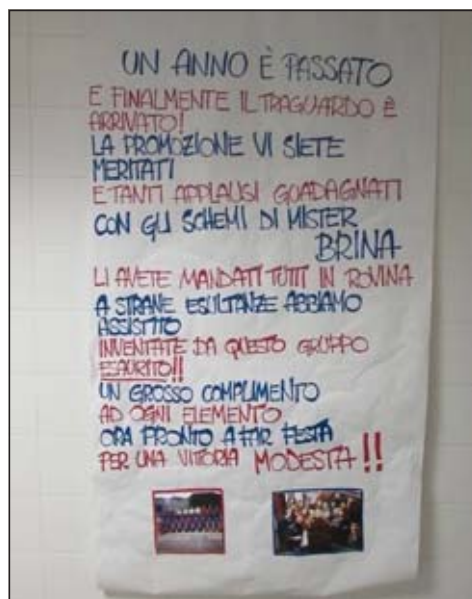 UN ANNO È PASSATO
E FINALMENTE IL TRAGUARDO È
ARRIVATO!
LA PROMOZIONE VI SIETE
MERITATI
E TANTI APPLAUSI GUADAGNATI
CON GLI SCHEMI DI MISTER
BRINA
LI AVETE MANDATI TUTTI IN ROVINA
A STRANE ESULTANZE ABBIAMO
ASSISTITO
INVENTATE DA QUESTO GRUPPO
ESAURITO!!
UN GROSSO COMPLIMENTO
AD OGNI ELEMENTO
ORA PRONTO A FAR FESTA
PER UNA VITTORIA MODESTA!!